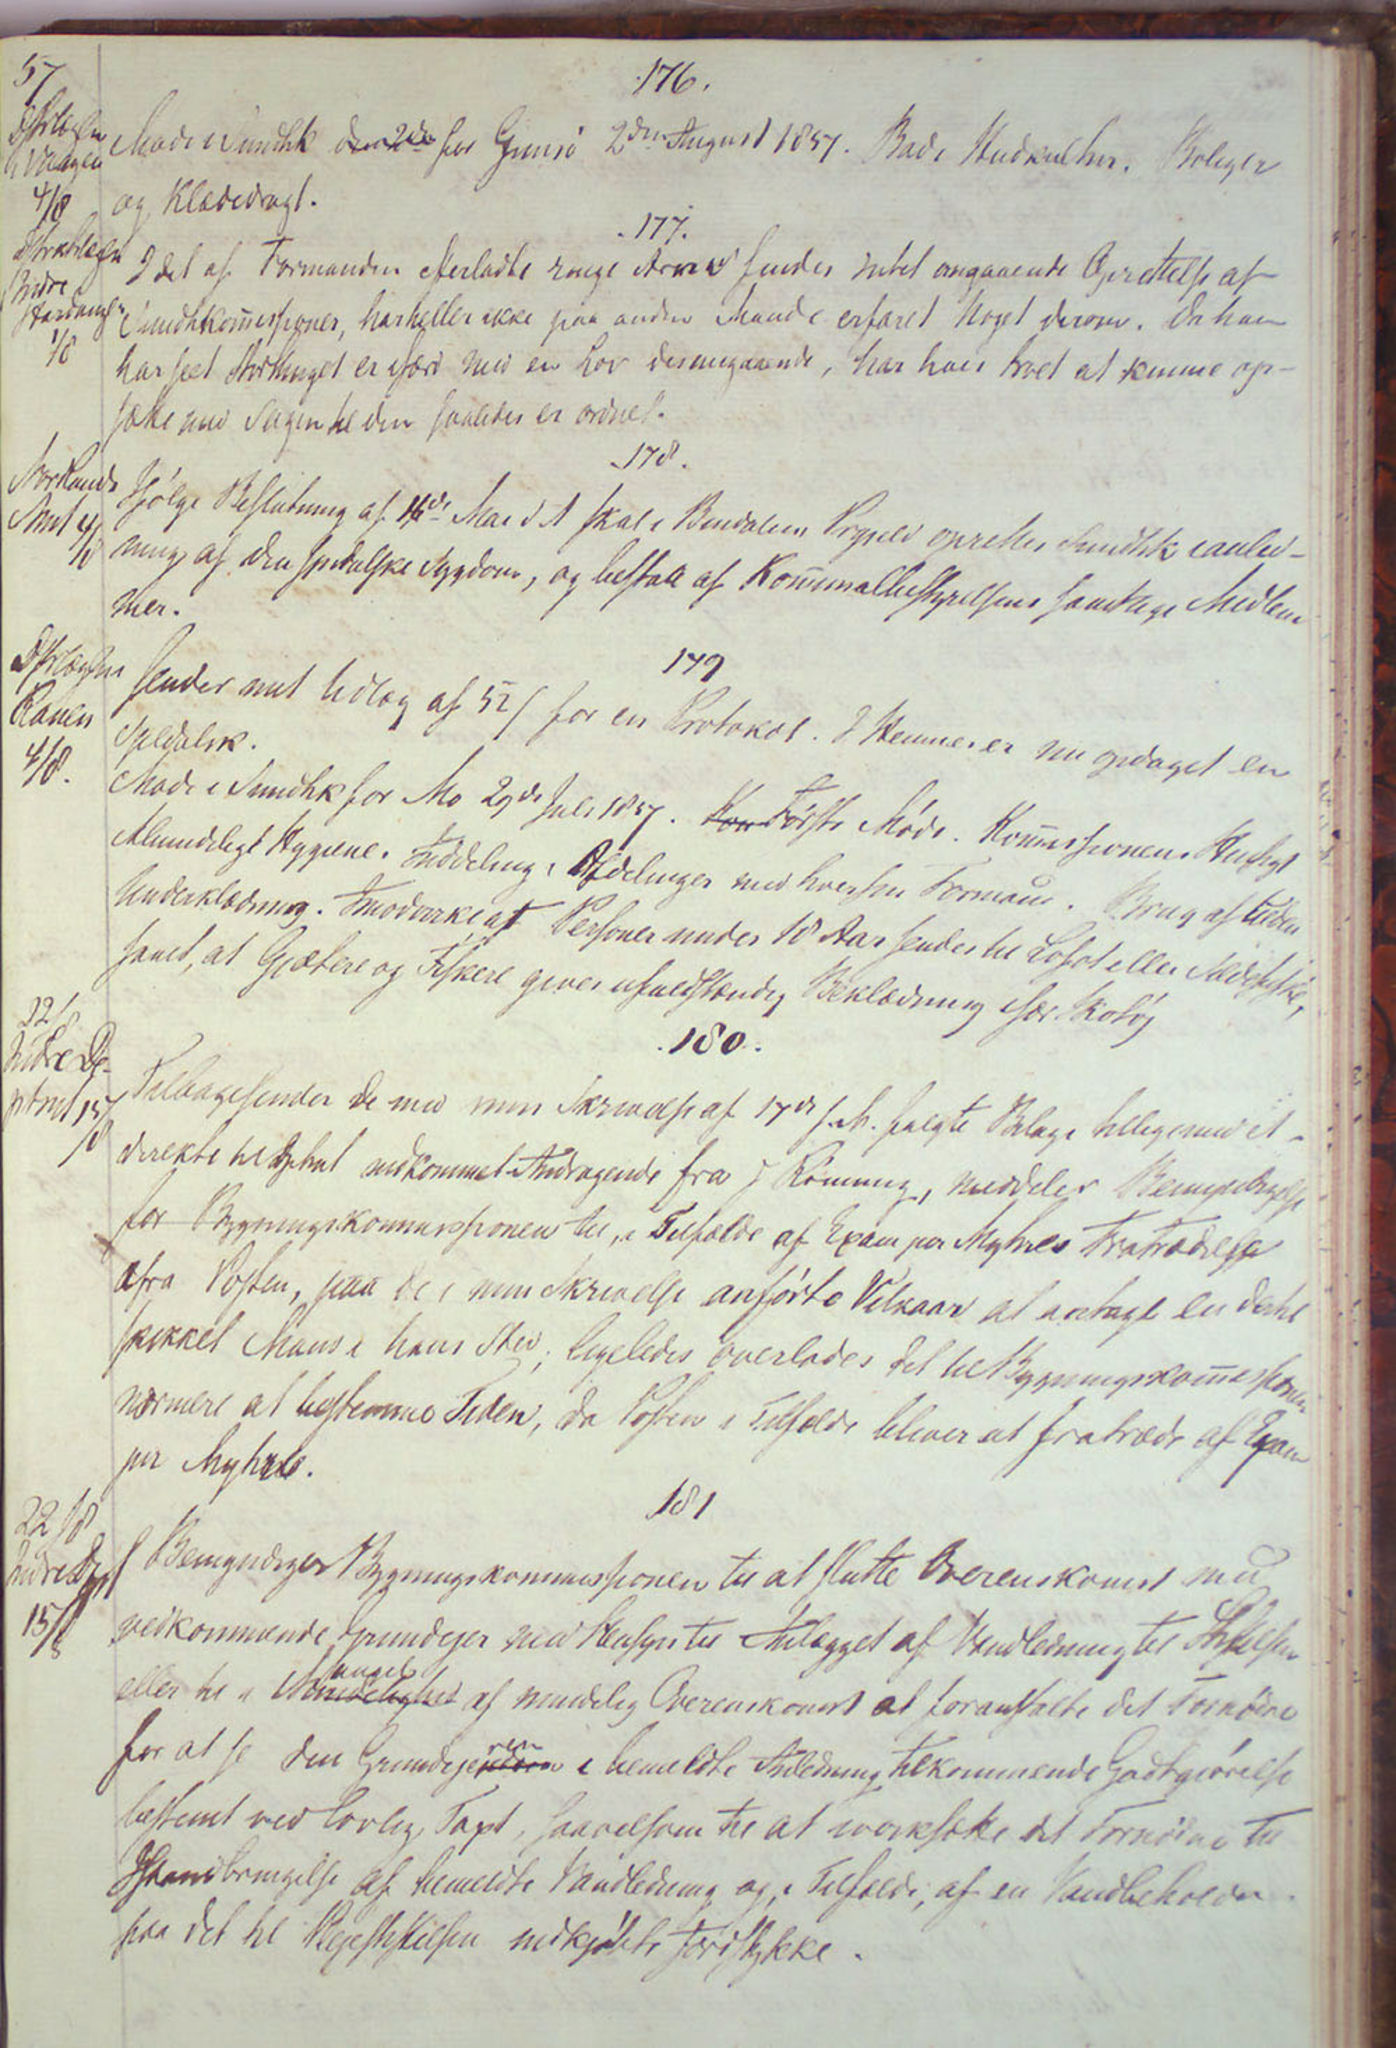 57
176.
Distrlægen
i Vaagen
4/8
Møde i Sundhk den 2den for Gimsø 2den August 1857. Bade Hudkultur. Boliger
og Klædedragt.
177.
Distriktslægen
Indre
Hardanger
1/8
I det af Formanden efterladte ringe Arkiv findes intet angaaende Oprettelse af
Sundhkommissioner, har heller ikke paa anden Maade erfaret Noget derom. Da han
har seet Storthinget er ifærd med en Lov desangaaende, har han troet at kunne op-
sætte med Sagen til den saaledes er ordnet.
178.
Nordlands
Amt 4/8
Ifølge Beslutning af 16de Mai d A skal i Bindalens Prgjeld oprettes Sundhk i anled-
ning af den spedalske Sygdom, og bestaa af Kommunalbestyrelsens samtlige Medlem-
mer.
179
Distrlægen
Ranen
4/8.
Sender mit Udlæg af 52 / for en Protokol. I Hemnes er nu opdaget en
spedalsk.
Møde i Sundhk for Mo 29de Juli 1857. Kon Første Møde. Kommissionens Hensigt
Almindeligt Hygiene. Inddeling i Afdelinger med hver sin Formand. Brug af ulden
Underklædning. Modvirke at Personer under 18 Aar sendes til Lofot eller Sildefiske,
samt, at Gjætere og Fiskere gives ufuldstændig Beklædning især Skotøy
22/8
180.
Indre De-
partmt 15/8
Tilbagesender de med min Skrivelse af 17de f. M. fulgte Bilage tilligemed et
direkte til Dptmt indkommet Andragende fra J Rönning, meddeler Bemyndigelse
for Bygningskommissionen til, i Tilfælde af Exam jur Myhres Fratrædelse
fra Posten, paa de i min Skrivelse anførte Vilkaar at antage en dertil
skikket Mand i hans Sted; ligeledes overlades det til Bygningskommissionen
nærmere at bestemme Tiden, da Posten i Tilfælde bliver at fratræde af Exam
jur Myhre.
22/8
181
Indre Dpt
15/8
Bemyndiger Bygningskommissionen til at slutte Overenskomst med
vedkommende Grundejer med Hensyn til Anlægget af Vandledning til Stiftelsen
eller til i Mangel af mindelig Overenskomst at foranstalte det Fornødne
for at se den Grundejeren i bemeldte Anledning tilkommende Godtgjørelse
bestemt ved lovlig Taxt, saavelsom til at iværksætte det Fornødne til
Istandbringelse af bemeldte Vandledning og, i Tilfælde, af en Vandbeholder
paa det til Plejestiftelsen indkjøbte Jordstykke.